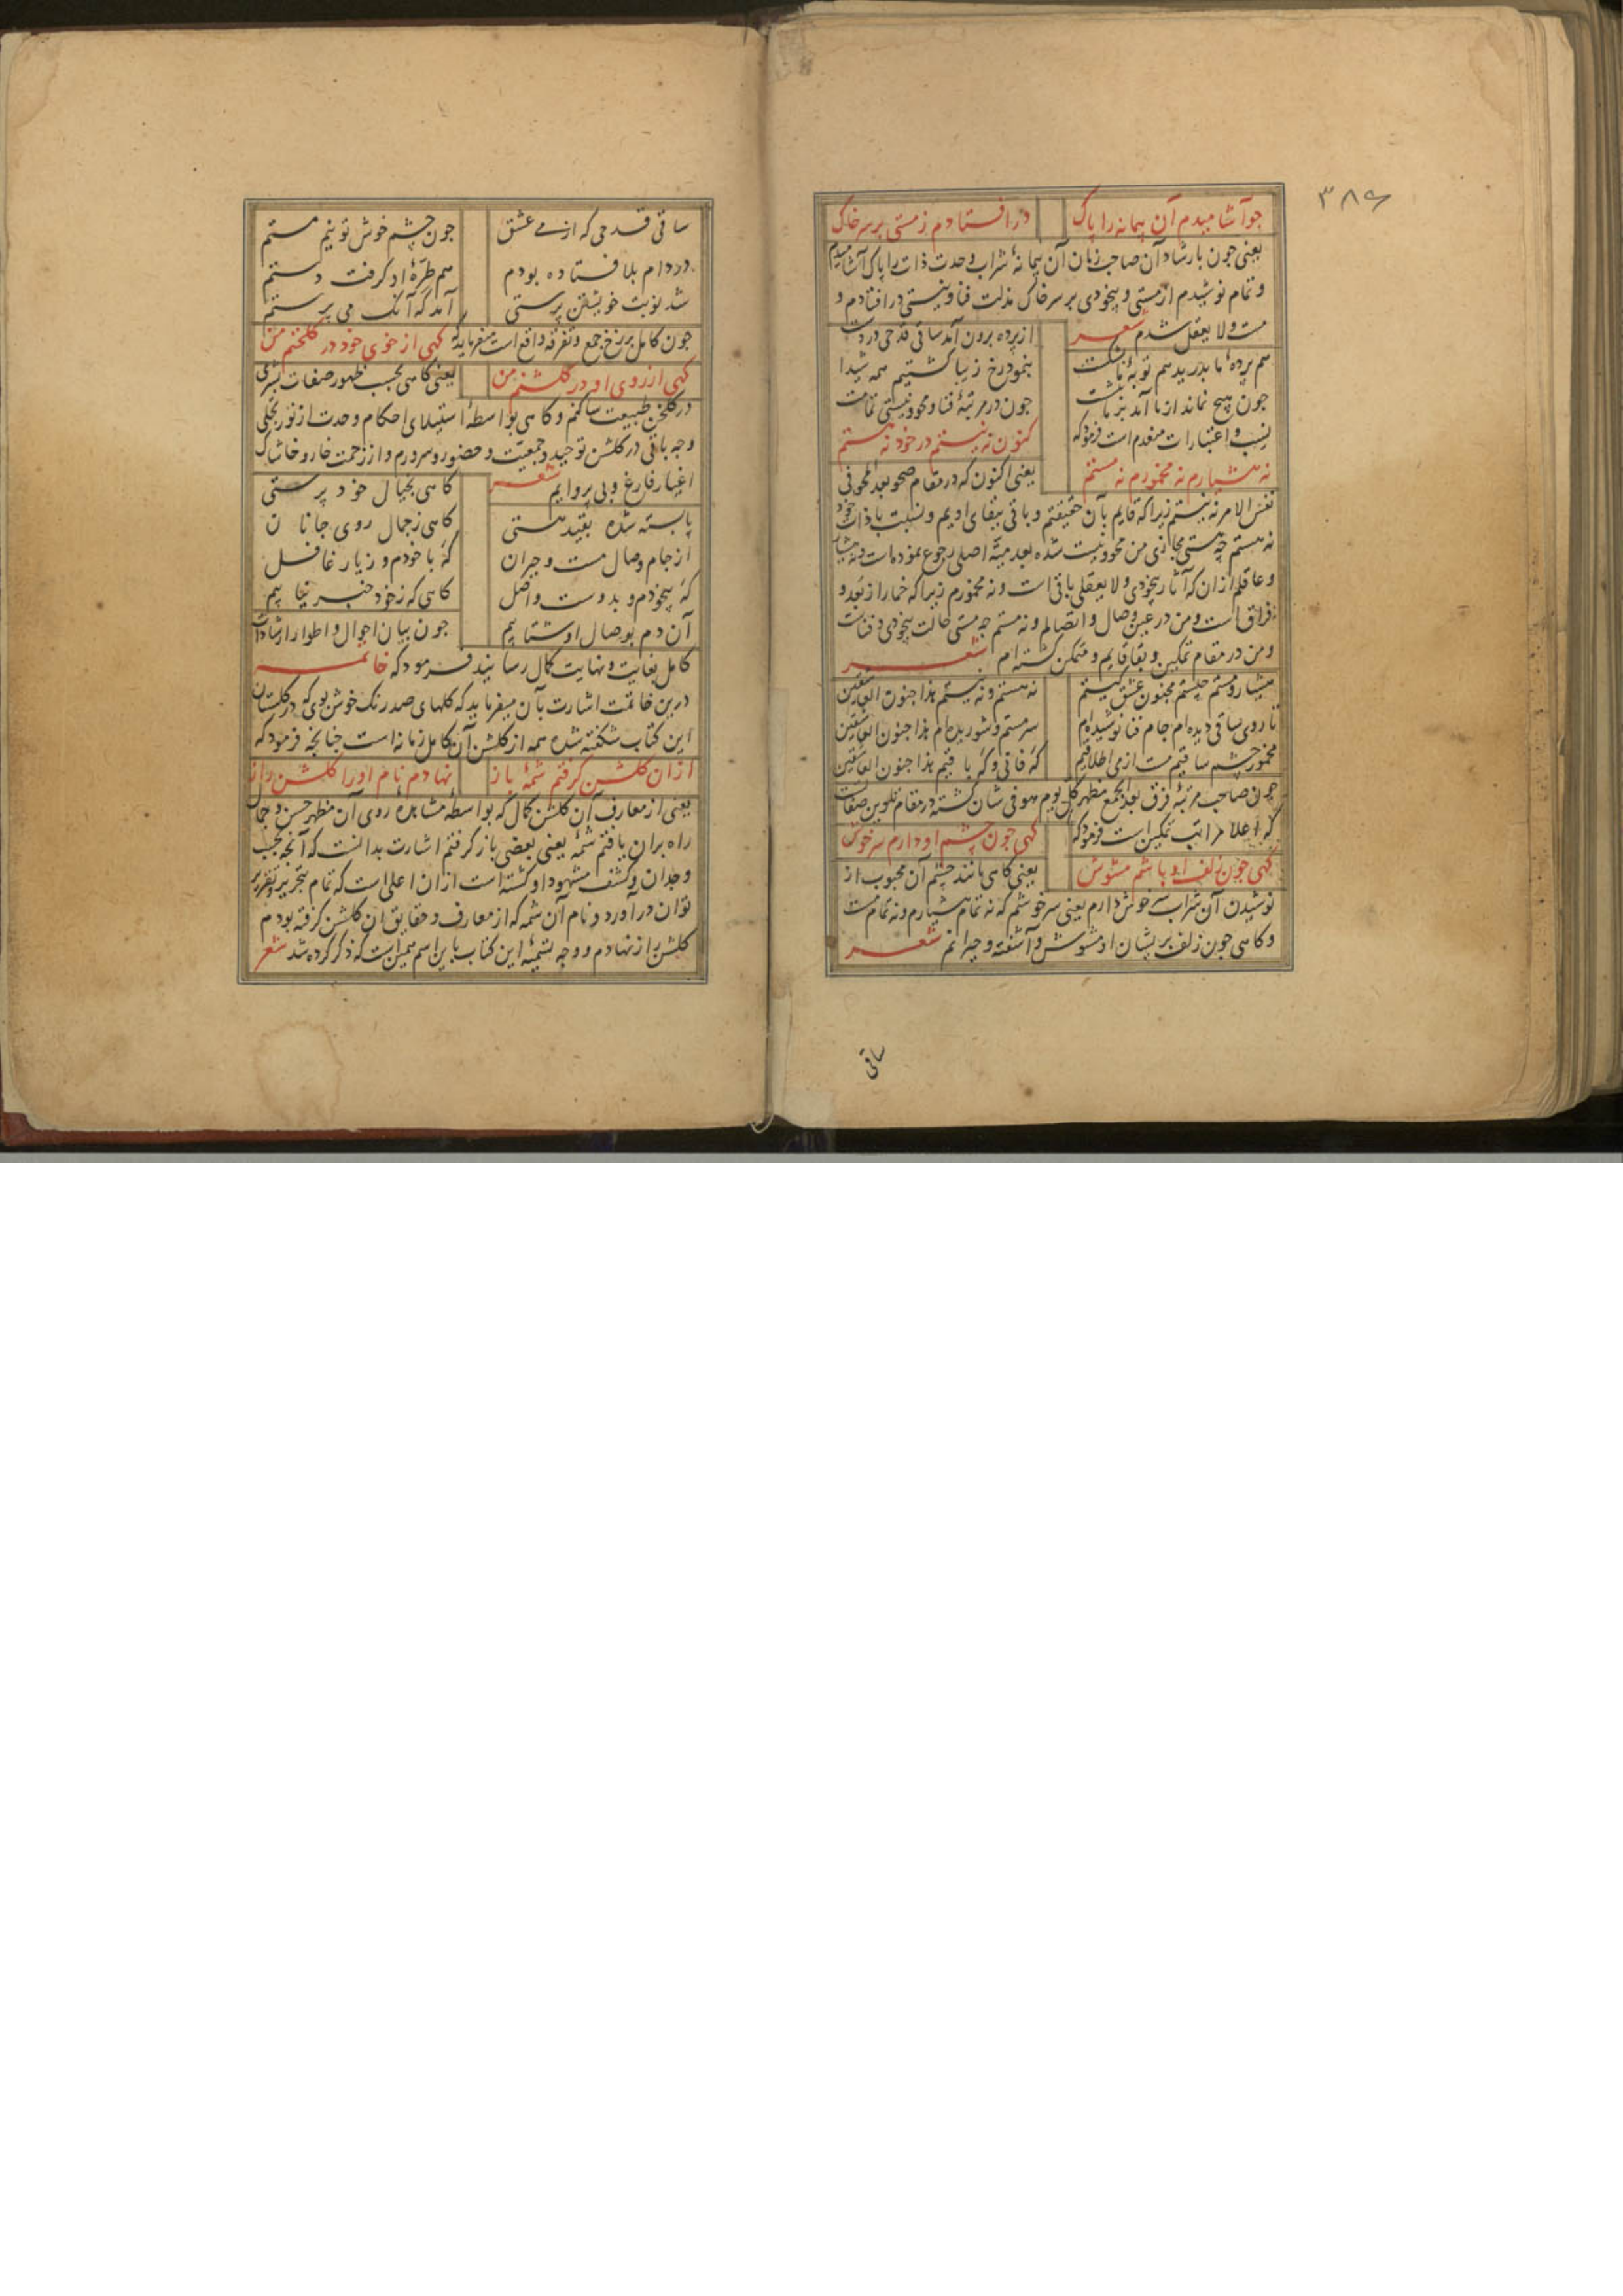 ۳۸۶
جو آشامیدم آن پیمانه را پاک در افتادم ز مستی بر سر خاک
یعنی جون بارشاد آن صاحب زمان آن پیمانهٔ شراب وحدت ذات را پاک آشامیدم
و تمام نوشیدم از مستی و بیخودی بر سر خاک مذلت فنا و نیستی در افتادم و
مست و لا یعقل شدم شعر از پرده برون آمد ساقی قدحی در دست
هم پردهٔ ما بدرید هم توبهٔ ما بشکست بنمود رخ زیبا گشتیم همه شیدا
جون هیچ نماند از ما آمد بر ما نشست جون در مرتبهٔ فنا و محو و نیستی تمامت
نسب و اعتبارات منعدم است فرمود که کنون نه نیستم در خود نه هستم
نه هشیارم نه مخمورم نه مستم یعنی اکنون که در مقام صحو بعد المحو فی
نفس الامر نه نیستم زیرا که قایم بآن حقیقتم و باقی ببقای اویم و نسبت با ذات خود
نه هستم چه هستی مجازی من محو و نیست شده بعدمیة اصلی رجوع نموده است و نه هشیار
و عاقلم از آن که آثار بیخودی و لا یعقلی باقی است و نه مخمورم زیرا که خمار از بعد و
فراق است و من در عین وصال و اتصالم و نه مستم جه مستی حالت بیخودی و فناست
و من در مقام تمکین و بقا قایم و متمکن گشته‌ام شعر
هشیار و مستم جیستم مجنون عشق کیستم نه هستم و نه نیستم هذا جنون العاشقین
تا روی ساقی دیده‌ام جام فنا نوشیده‌ام سرمستم و شوریده‌ام هذا جنون العاشقین
مخمور چشم ساقیم مست از می اطلاقیم که فانی و که باقیم هذا جنون العاشقین
چون صاحب مرتبهٔ فرق بعد الجمع مظهر کل یوم هو فی شان گشته در مقام تلوین صفات
که اعلا مراتب تمکین است فرمود که کهی جون چشم او دارم سر خوش
کهی جون زلف او باشم مشوش یعنی کاهی مانند چشم آن محبوب از
نوشیدن آن شراب سر خوش دارم یعنی سرخوشم که نه تمام هشیارم و نه تمام مست
و کاهی جون زلف پریشان او مشوش و آشفته و حیرانم شعر
ساقی
ساقی قدحی که از می عشق جون چشم خوش تو نیم مستم
در دام بلا فتاده بودم هم طرهٔ او کرفت دستم
شد نوبت خویشتن پرستی آمد که آنک می پرستم
جون کامل برزخ جمع و تفرقه واقع است میفرماید که کهی از خوی خود در کلخنم من
کهی از روی او در کلشنم من یعنی کاهی بحسب ظهور صفات بشری
در کلخن طبیعت ساکنم و کاهی بواسطهٔ استیلای احکام وحدت از نور تجلی
وجه باقی در کلشن توحید و جمعیت و حضور و سرورم و از زحمت خار و خاشاک
اغیار فارغ و بی پروایم شعر کاهی بخیال خود پرستی
پابسته شده بقید هستی کاهی ز جمال روی جانان
از جام وصال مست و حیران که با خودم و ز یار غافل
که بیخودم و بدوست واصل کاهی که ز خود خبر نیابیم
آن دم بوصال او شتابیم جون بیان احوال و اطوار ارشادات
کامل بغایت و نهایت کمال رسانید فرمود که خاتمه
درین خاتمت اشارت بآن میفرماید که کلهای صد رنک خوش بوی که در کلستان
این کتاب شکفته شده همه از کلشن آن کامل زمانه است جنانجه فرمود که
از آن کلشن کرفتم شمهٔ باز نهادم نام او را کلشن راز
یعنی از معارف آن کلشن کمال که بواسطهٔ مشاهدهٔ روی آن مظهر حسن و جمال
راه بران یافتم شمه یعنی بعضی باز کرفتم اشارت بدانست که آنجه بحسب
وجدان و کشف مشهود او کشته است از آن اعلی است که تمام بتحریر و تقریر
توان در آورد و نام آن شمه که از معارف و حقایق آن کلشن کرفته بودم
کلشن راز نهادم و وجه تسمیهٔ این کتاب باین اسم همین است که ذکر کرده شد شعر